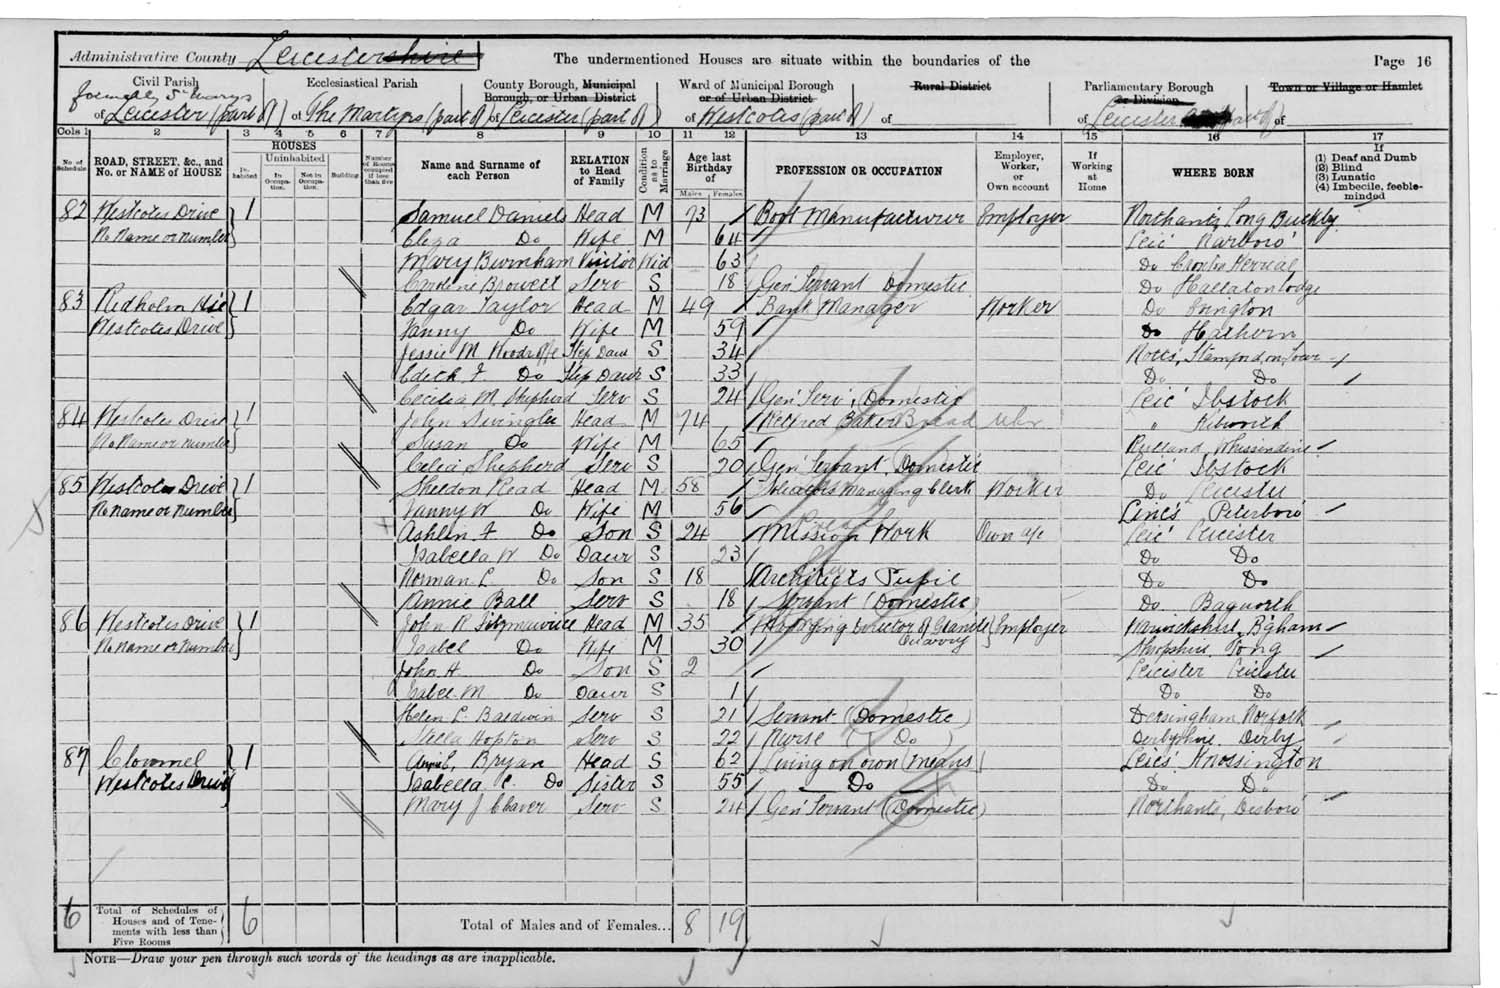 Administrative County Leicestershire The undermentioned Houses are situate within the boundaries of the Page 16
Civil Parish Ecclesiastical Parish County Borough, Municipal Borough, or Urban District Ward of Municipal Borough or of Urban District Rural District Parliamentary Borough or Division Town or Village or Hamlet
formerly St Marys
of Leicester (part of) of The Martyrs (part of) of Leicester (part of) of Westcotes (part of) of of Leicester (part of) of
Cols 1 2 3 4 5 6 7 8 9 10 11 12 13 14 15 16 17
No. of Schedule ROAD, STREET, &c., and No. or NAME of HOUSE HOUSES Inhabited Uninhabited In Occupation. Not in Occupation. Building Number of Rooms occupied if less than five Name and Surname of each Person RELATION to Head of Family Condition as to Marriage Age last Birthday of Males Females PROFESSION OR OCCUPATION Employer, Worker, or Own account If Working at Home WHERE BORN If (1) Deaf and Dumb (2) Blind (3) Lunatic (4) Imbecile, feeble-minded
82 Westcotes Drive 1 Samuel Daniels Head M 73 Boot Manufacturer Employer Northants, Long Buckby
No Name or Number Eliza Do Wife M 64 Leic Narboro'
Mary Burnham Visitor Wid 63 Do
Caroline Serv S 18 Gen Servant Domestic Do Hallaton Lodge
83 Redholm Hse 1 Edgar Taylor Head M 49 Bank Manager Worker Do Evington
Westcotes Drive Fanny Do Wife M 59 Do Hathern
Jessie M. Woodroffe Step Daur S 34 Notts, Stanford on Soar
Edith F Do Step Daur S 33 Do Do
Cecilia M Shepherd Serv S 24 Gen Serv, Domestic Leic Ibstock
84 Westcotes Drive 1 John Head M 74 Retired Baker Bread " Kibworth
No Name or Number Susan Do Wife M 65 Rutland Whissendine
Celia Shepherd Serv S 20 Gen Servant Domestic Leic Ibstock
85 Westcotes Drive 1 Sheldon Read Head M 58 Managing Clerk Worker Do Leicester
No Name or Number Fanny W Do Wife M 56 Peterboro
Ashlin F Do Son S 24 Mission Work Own a/c Leic Leicester
Isabella W Do Daur S 23 Do Do
Norman L. Do Son S 18 Architects Pupil Do Do
Annie Ball Serv S 18 Servant (Domestic) Do Bagworth
86 Westcotes Drive 1 John R Fitzmaurice Head M 35 Managing Director of Granite Employer Warwickshire, B'gham
No Name or Number Isabel Do Wife M 30 Quarry Shropshire Tong
John H. Do Son S 2 Leicester Leicester
Isabel M Do Daur S 1 Do Do
Helen L. Baldwin Serv S 21 Servant (Domestic) Dersingham Norfolk
Stella Hopton Serv S 22 Nurse (Do) Derbyshire Derby
87 Clonmel 1 Bryan Head S 62 Living on own means Leics Knossington
Westcotes Drive Isabella C. Do Sister S 55 Do Do Do
Mary J Cleaver Serv S 24 Gen Servant (Domestic) Northants, Desboro'
6 Total of Schedules of Houses and of Tenements with less than Five Rooms 6 Total of Males and of Females... 8 19
NOTE—Draw your pen through such words of the headings as are inapplicable.